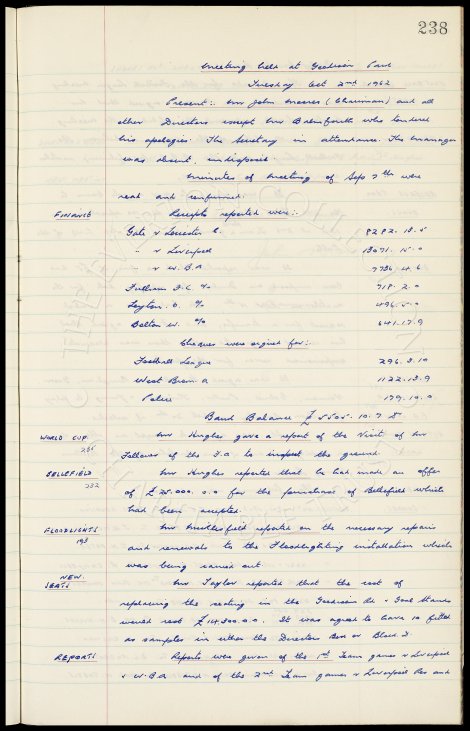 238
Meeting held at Goodison Park
Tuesday Oct 2nd 1962
Present:- Mr John Moores (Chairman) and all
other Directors except Mr who tendered
his apologies. The Secretary in attendance. The Manager
was absent, indisposed.
Minutes of meeting of Sep 7th were
read and confirmed.
FINANCE Receipts reported were:-
Gate v Leicester C. 8282. 18. 5
" v Liverpool 13071. 15. 0
" v W.B.A 7736. 4. 6
Fulham F.C. % 718. 2. 0
Leyton. O. % 496. 5. 0
Bolton W. % 641. 17. 9
Cheques were signed for:-
Football League 296. 3. 10
West Brom. A 1122. 13. 9
Police 179. 10. 0
Bank Balance £ 5505. 10. 7
WORLD CUP Mr Hughes gave a report of the visit of Mr
Followes of the F.A. to inspect the ground.
BELLEFIELD Mr Hughes reported that he had made an offer
232
of £ 25.000. 0. 0 for the purchase of Bellefield which
had been accepted.
FLOODLIGHTS Mr reported on the necessary repairs
193
and renewals to the Floodlighting installation which
was being carried out
NEW SEATS Mr Taylor reported that the cost of
replacing the seating in the Goodison Rd & Goal Stands
would cost £ 14,300. 0. 0. It was agreed to have 10 fitted
as samples in either the Directors Box or Block
REPORTS Reports were given of the 1st Team games v Liverpool
v W.B.A and of the 2nd Team games v Liverpool Res and